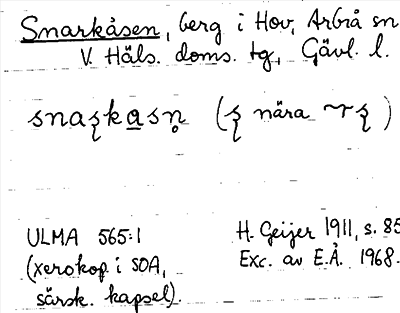 Snarkåsen, berg i Hov, Arbrå sn
V. Häls. doms. tg, Gävl. l.
ʂnaʂkasn̥ (ʂ nära ~rʂ)
ULMA 565:1
(xerokop. i SOA,
särsk. kapsel).
H. Geijer 1911, s. 85
Exc. av E.Å. 1968.